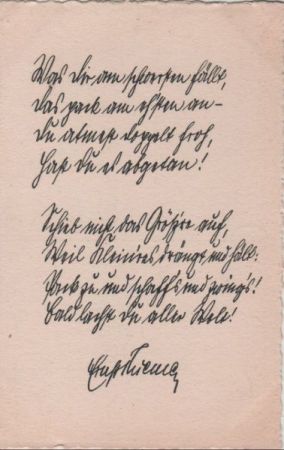 Was Dir am schwersten fällt,
das pack am ehsten an –
Du atmest doppelt froh,
Hast Du es abgetan!
Schieb nicht das Größre auf,
Weil Kleinres drängt und hält:
Pack zu und schaff's und zwing's!
Bald lachst Du aller Welt!